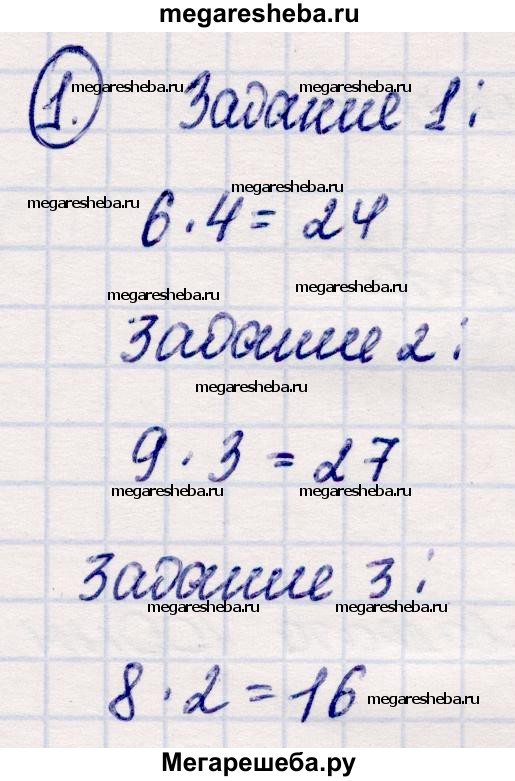 megaresheba.ru
1. megaresheba.ru Задание 1:
megaresheba.ru
megaresheba.ru
megaresheba.ru
6 · 4 = 24
megaresheba.ru
megaresheba.ru
Задание 2:
megaresheba.ru
9 · 3 = 27
megaresheba.ru megaresheba.ru
Задание 3:
megaresheba.ru megaresheba.ru
8 · 2 = 16 megaresheba.ru
Мегарешеба.ру